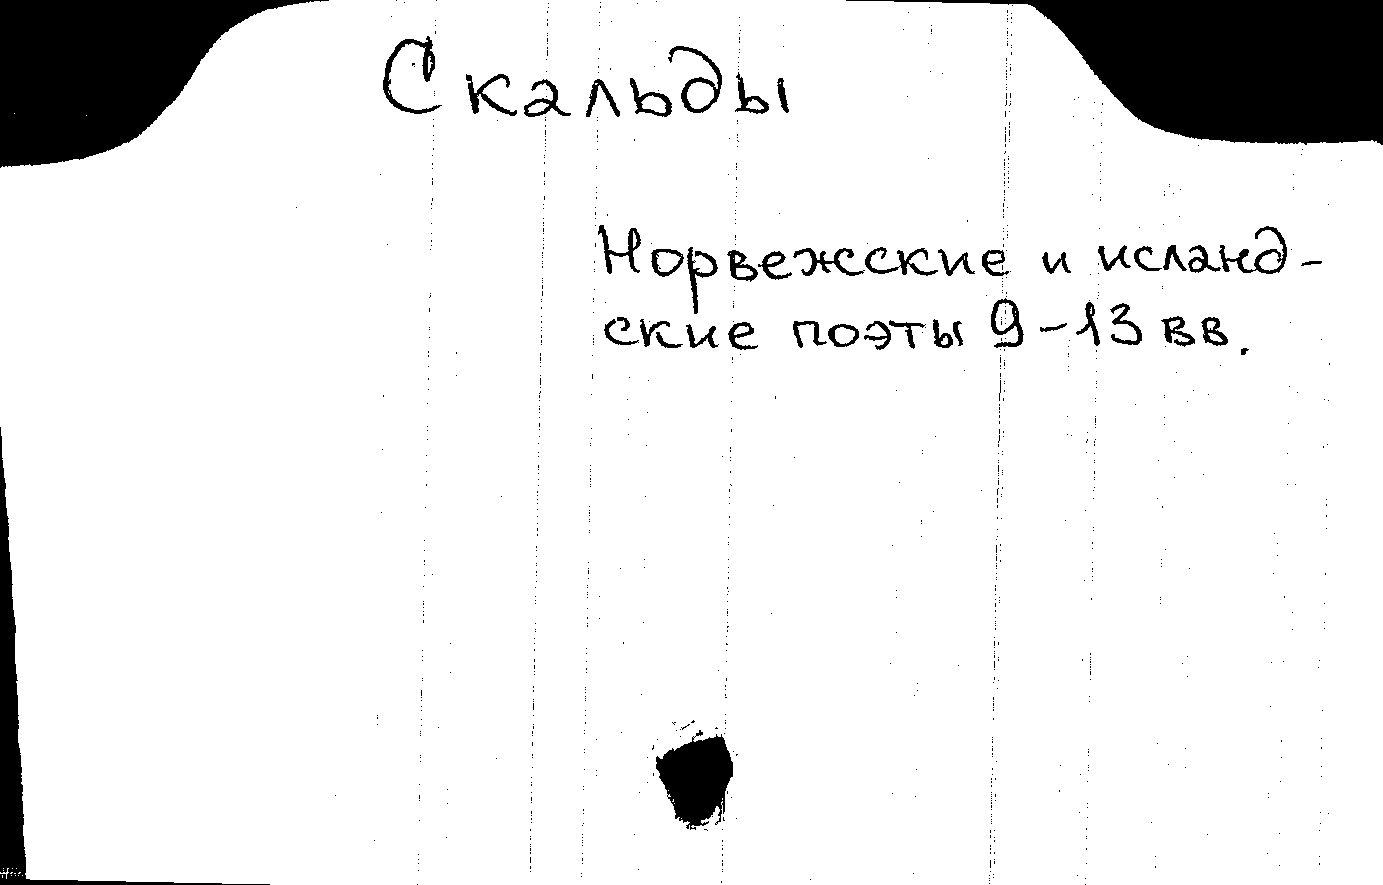 Скальды
Норвежские и исланд-
ские поэты 9-13 вв.